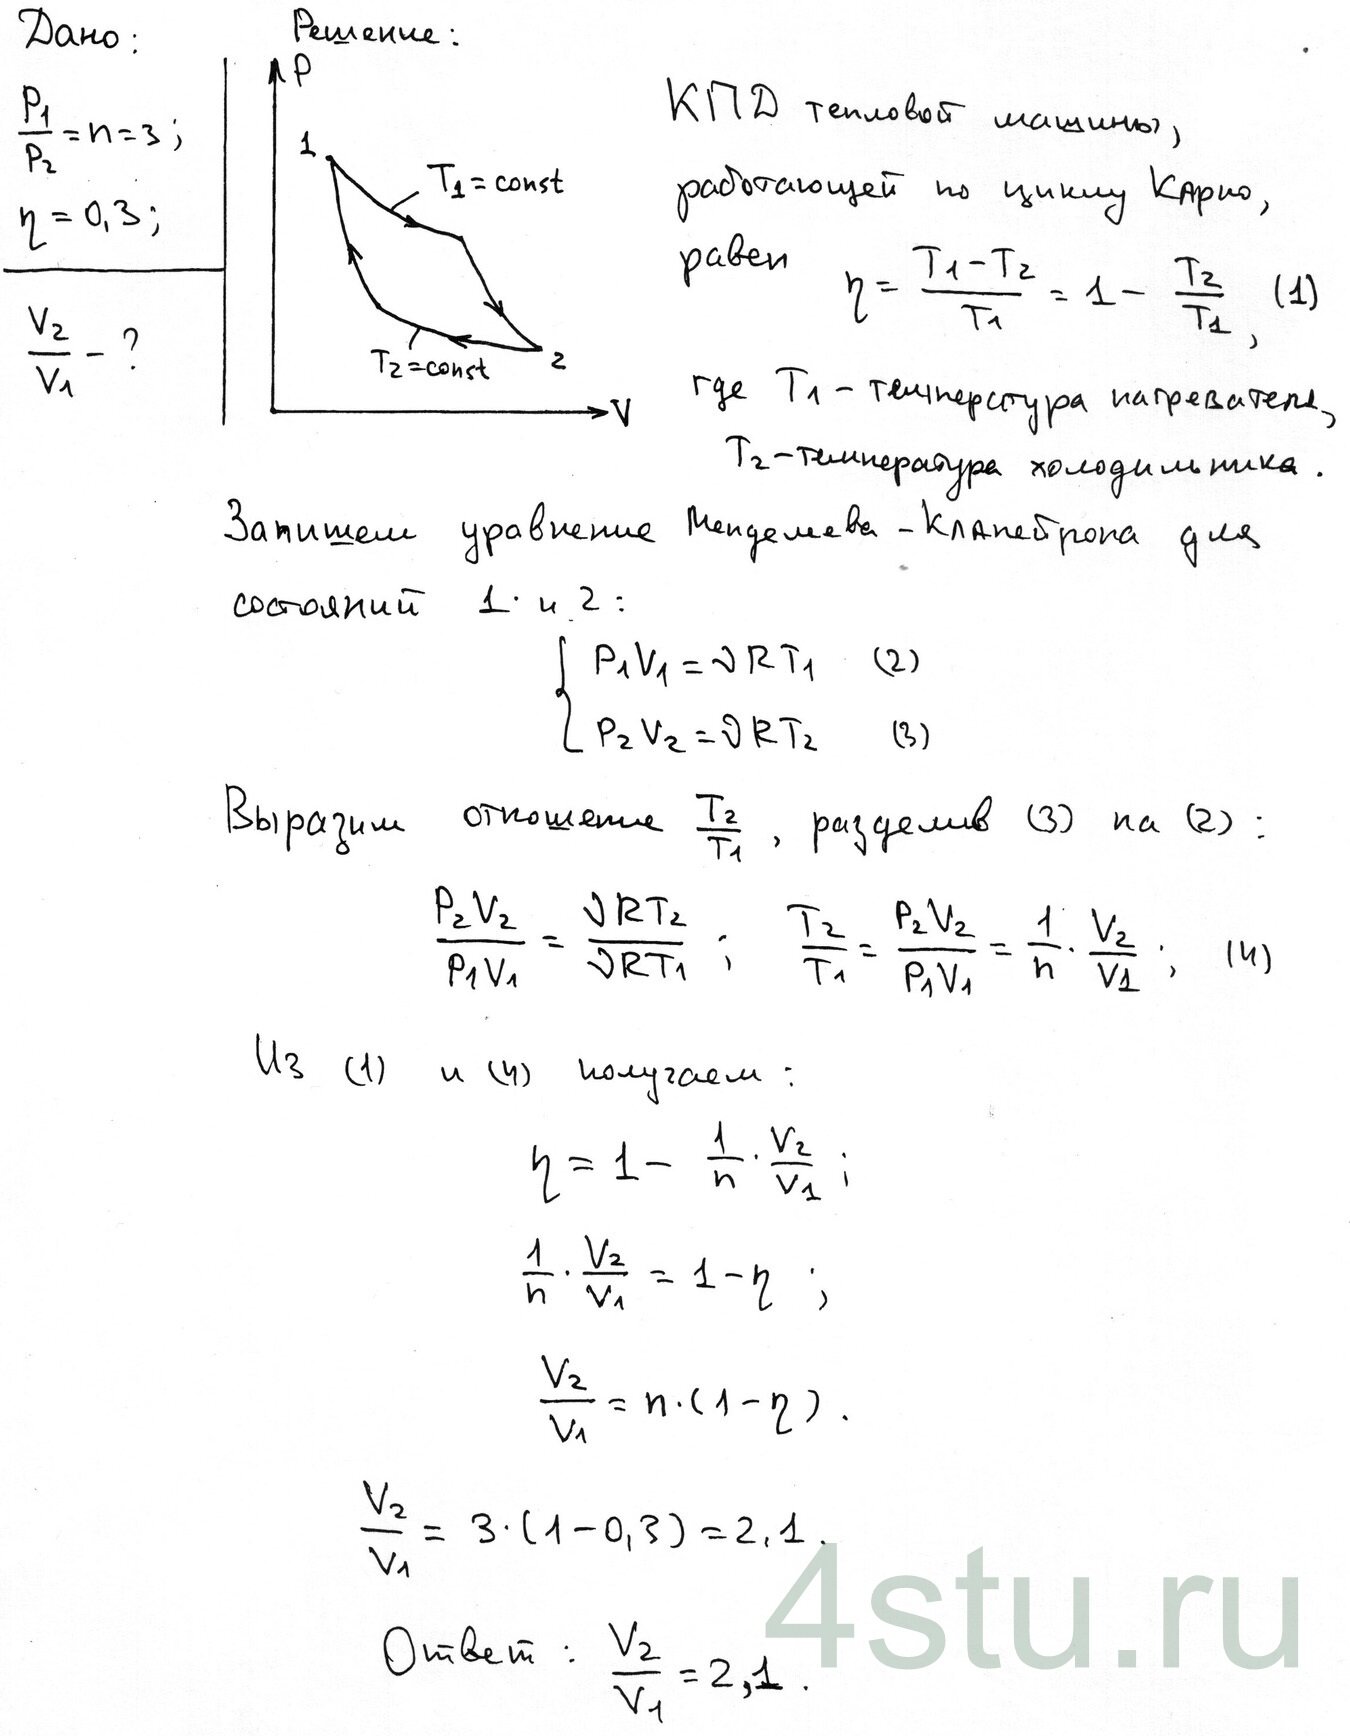 Дано:
P₁/P₂ = n = 3;
η = 0,3;
V₂/V₁ - ?
Решение:
P
1
T₁ = const
T₂ = const
2
V
КПД тепловой машины,
работающей по циклу Карно,
равен η = (T₁ - T₂)/T₁ = 1 - T₂/T₁, (1)
где T₁ - температура нагревателя,
T₂ - температура холодильника.
Запишем уравнение Менделеева - Клапейрона для
состояний 1 и 2:
P₁V₁ = νRT₁ (2)
P₂V₂ = νRT₂ (3)
Выразим отношение T₂/T₁, разделив (3) на (2):
P₂V₂/P₁V₁ = νRT₂/νRT₁; T₂/T₁ = P₂V₂/P₁V₁ = 1/n · V₂/V₁; (4)
Из (1) и (4) получаем:
η = 1 - 1/n · V₂/V₁;
1/n · V₂/V₁ = 1 - η;
V₂/V₁ = n·(1 - η).
V₂/V₁ = 3·(1 - 0,3) = 2,1.
Ответ: V₂/V₁ = 2,1.
4stu.ru